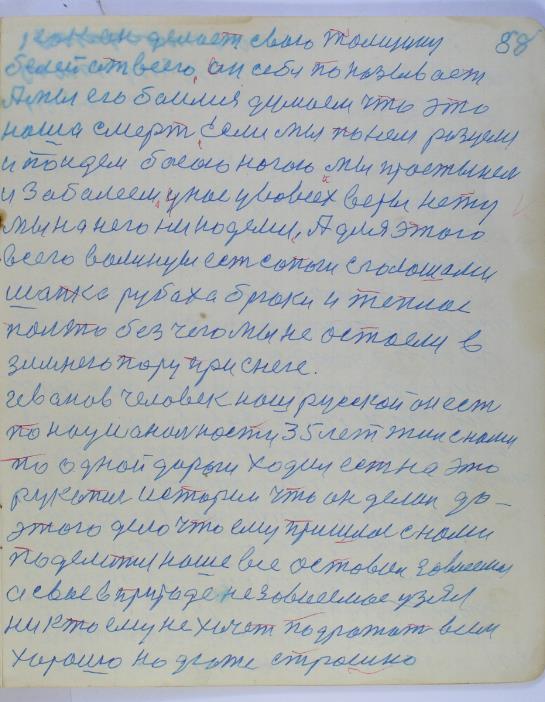 88
как он делает свою толщину
белей от всего, он себя показывает
А мы его боимся думаем что это
наша смерт если мы по нем разуем
и пойдем босою ногою, мы простынем
и заболеем, у нас у вовсех веры нету
мы на него ни надеми, А для этого
всего валинцы ест сапоги с голошами
шапка рубаха брюки и теплое
полято без чего мы не остаеми в
зимнею пору при снеге.
Иванов человек наш русской он ест
по науианалности, 35 лет жил с нами
по одной дороги ходил ест на это
рукопис истории что он делал до-
этого дело что ему пришлос с нами
поделитис наше все оставил зовисимы
а свое в природе независемое узял
никто ему не хочет подрожат всем
хорошо но даже строшно